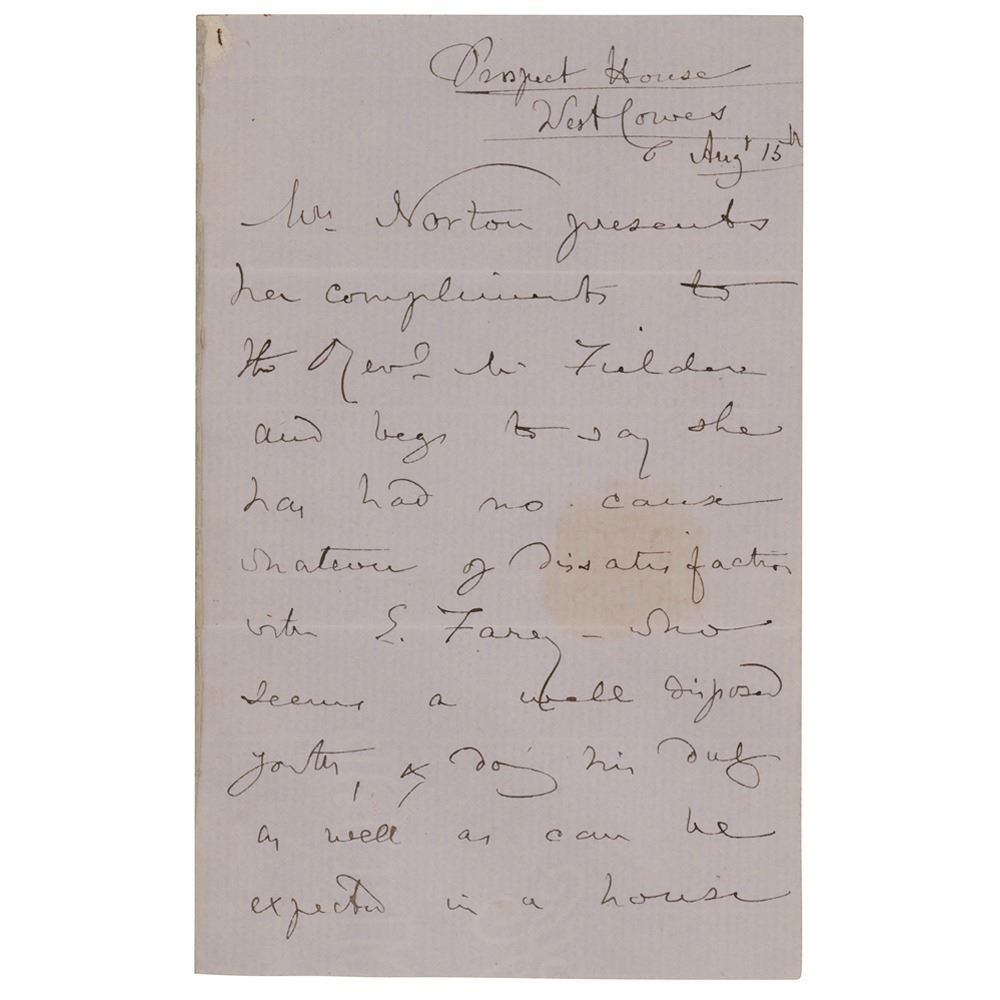 1
Prospect House
West Cowes
Augt 15th
Mrs Norton presents
her compliments to
the Revd Mr Fielder
and begs to say she
has had no cause
whatever of dissatisfaction
with E. Farey – who
seems a well disposed
youth, & doing his duty
as well as can be
expected in a house